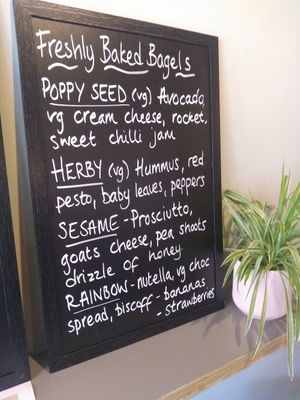 Freshly Baked Bagels
POPPY SEED (vg) Avocado,
vg cream cheese, rocket,
sweet chilli jam
HERBY (vg) Hummus, red
pesto, baby leaves, peppers
SESAME - Prosciutto,
goats cheese, pea shoots
drizzle of honey
RAINBOW - nutella, vg choc
spread, biscoff - bananas
- strawberries